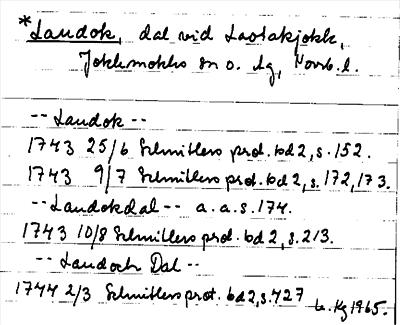 *Laudok, dal vid Laotakjokk,
Jokkmokks sn o. lg, Norrb. l.
-- Laudok --
1743 25/6 Schnitlers prot. bd 2, s. 152.
1743 9/7 Schnitlers prot. bd 2, s. 172, 173.
-- Laudokdal -- a. a. s. 174.
1743 10/8 Schnitlers prot. bd 2, s. 213.
-- Laudoch Dal --
1744 2/3 Schnitlers prot. bd 2, s. 427
Kg 1965.